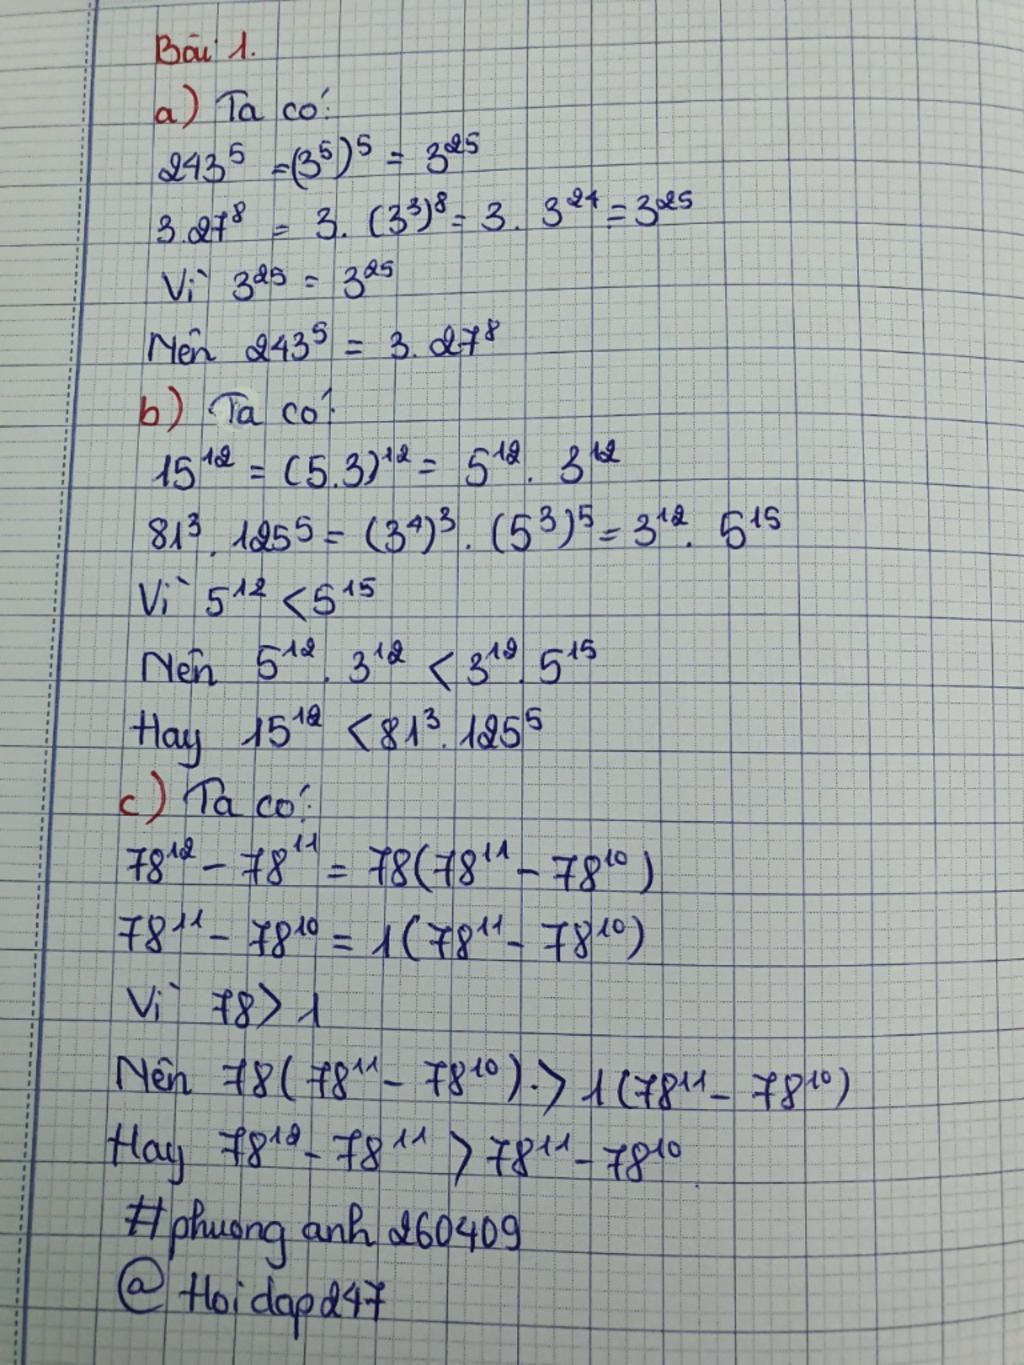 Bài 1.
a) Ta có:
243⁵ = (3⁵)⁵ = 3²⁵
3.27⁸ = 3. (3³)⁸ = 3. 3²⁴ = 3²⁵
Vì 3²⁵ = 3²⁵
Nên 243⁵ = 3. 27⁸
b) Ta có:
15¹² = (5.3)¹² = 5¹². 3¹²
81³. 125⁵ = (3⁴)³. (5³)⁵ = 3¹². 5¹⁵
Vì 5¹² < 5¹⁵
Nên 5¹². 3¹² < 3¹². 5¹⁵
Hay 15¹² < 81³. 125⁵
c) Ta có:
78¹² - 78¹¹ = 78(78¹¹ - 78¹⁰)
78¹¹ - 78¹⁰ = 1(78¹¹ - 78¹⁰)
Vì 78 > 1
Nên 78(78¹¹ - 78¹⁰) > 1(78¹¹ - 78¹⁰)
Hay 78¹² - 78¹¹ > 78¹¹ - 78¹⁰
#phuong anh 260409
@ Hoidap247